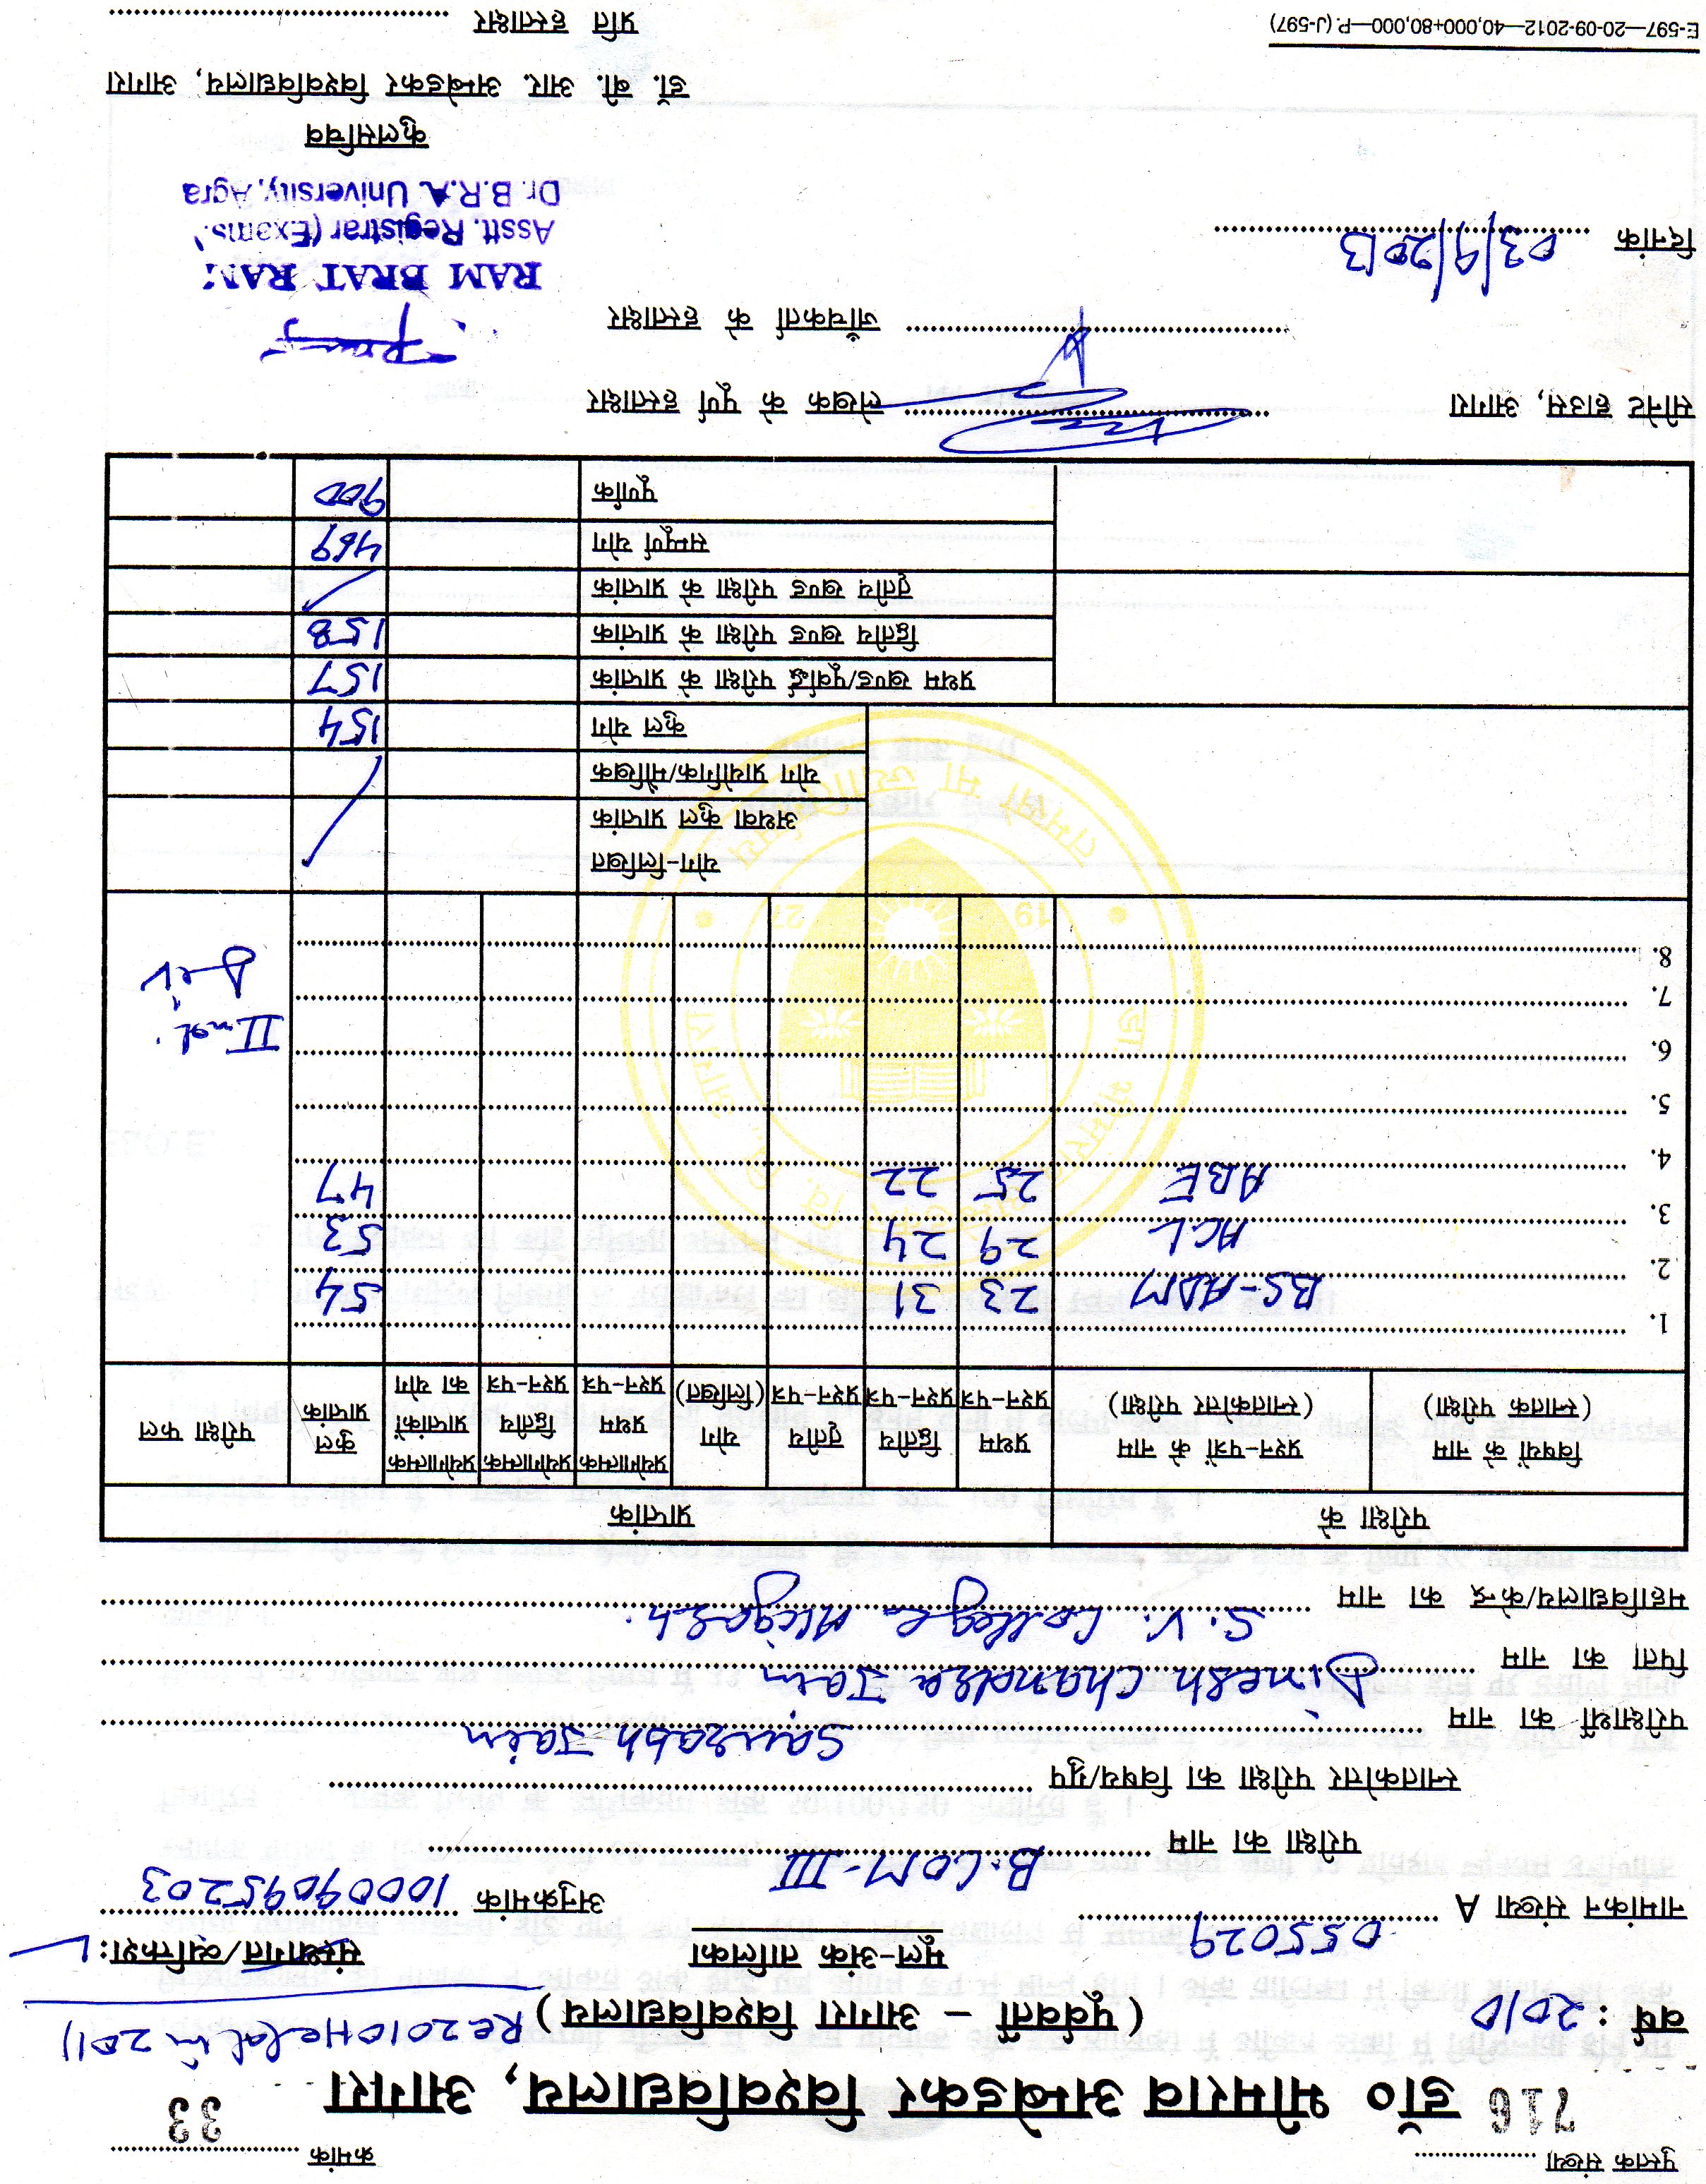 पुस्तक संख्या ............ क्रमांक ............
716 33
डॉ० भीमराव अम्बेडकर विश्वविद्यालय, आगरा
वर्ष : 2010 (पूर्ववर्ती – आगरा विश्वविद्यालय) Re2010 Held in 2011
मूल-अंक तालिका संस्थागत/व्यक्तिशः
नामांकन संख्या A 055029 अनुक्रमांक 10009095203
परीक्षा का नाम B.COM-III
स्नातकोत्तर परीक्षा का विषय/ग्रुप ............
परीक्षार्थी का नाम Saurabh Jain
पिता का नाम Dinesh Chandra Jain
महाविद्यालय/केन्द्र का नाम S.V. College Aligarh.
परीक्षा के प्राप्तांक
विषयों के नाम (स्नातक परीक्षा) प्रश्न-पत्रों के नाम (स्नातकोत्तर परीक्षा) प्रथम प्रश्न-पत्र द्वितीय प्रश्न-पत्र तृतीय प्रश्न-पत्र योग (लिखित) प्रयोगात्मक प्रथम प्रश्न-पत्र प्रयोगात्मक द्वितीय प्रश्न-पत्र प्रयोगात्मक प्राप्तांकों का योग कुल प्राप्तांक परीक्षा फल
1. BS-ADM 23 31 54
2. ACL 29 24 53
3. ABE 25 22 47
4.
5.
6. IInd
7. Div
8.
योग-लिखित
अथवा कुल प्राप्तांक
योग प्रायोगिक/मौखिक
कुल योग 154
प्रथम खण्ड/पूर्वार्द्ध परीक्षा के प्राप्तांक 157
द्वितीय खण्ड परीक्षा के प्राप्तांक 158
तृतीय खण्ड परीक्षा के प्राप्तांक
सम्पूर्ण योग 469
पूर्णांक 900
सीनेट हाउस, आगरा ............ लेखक के पूर्ण हस्ताक्षर
............ जाँचकर्ता के हस्ताक्षर
दिनांक 03/9/2013
RAM BRAT RAM
Asstt. Registrar (Exams.)
Dr. B.R.A. University, Agra
कुलसचिव
डॉ. बी. आर. अम्बेडकर विश्वविद्यालय, आगरा
E-597—20-09-2012—40,000+80,000—P. (J-597) प्रति हस्ताक्षर ............